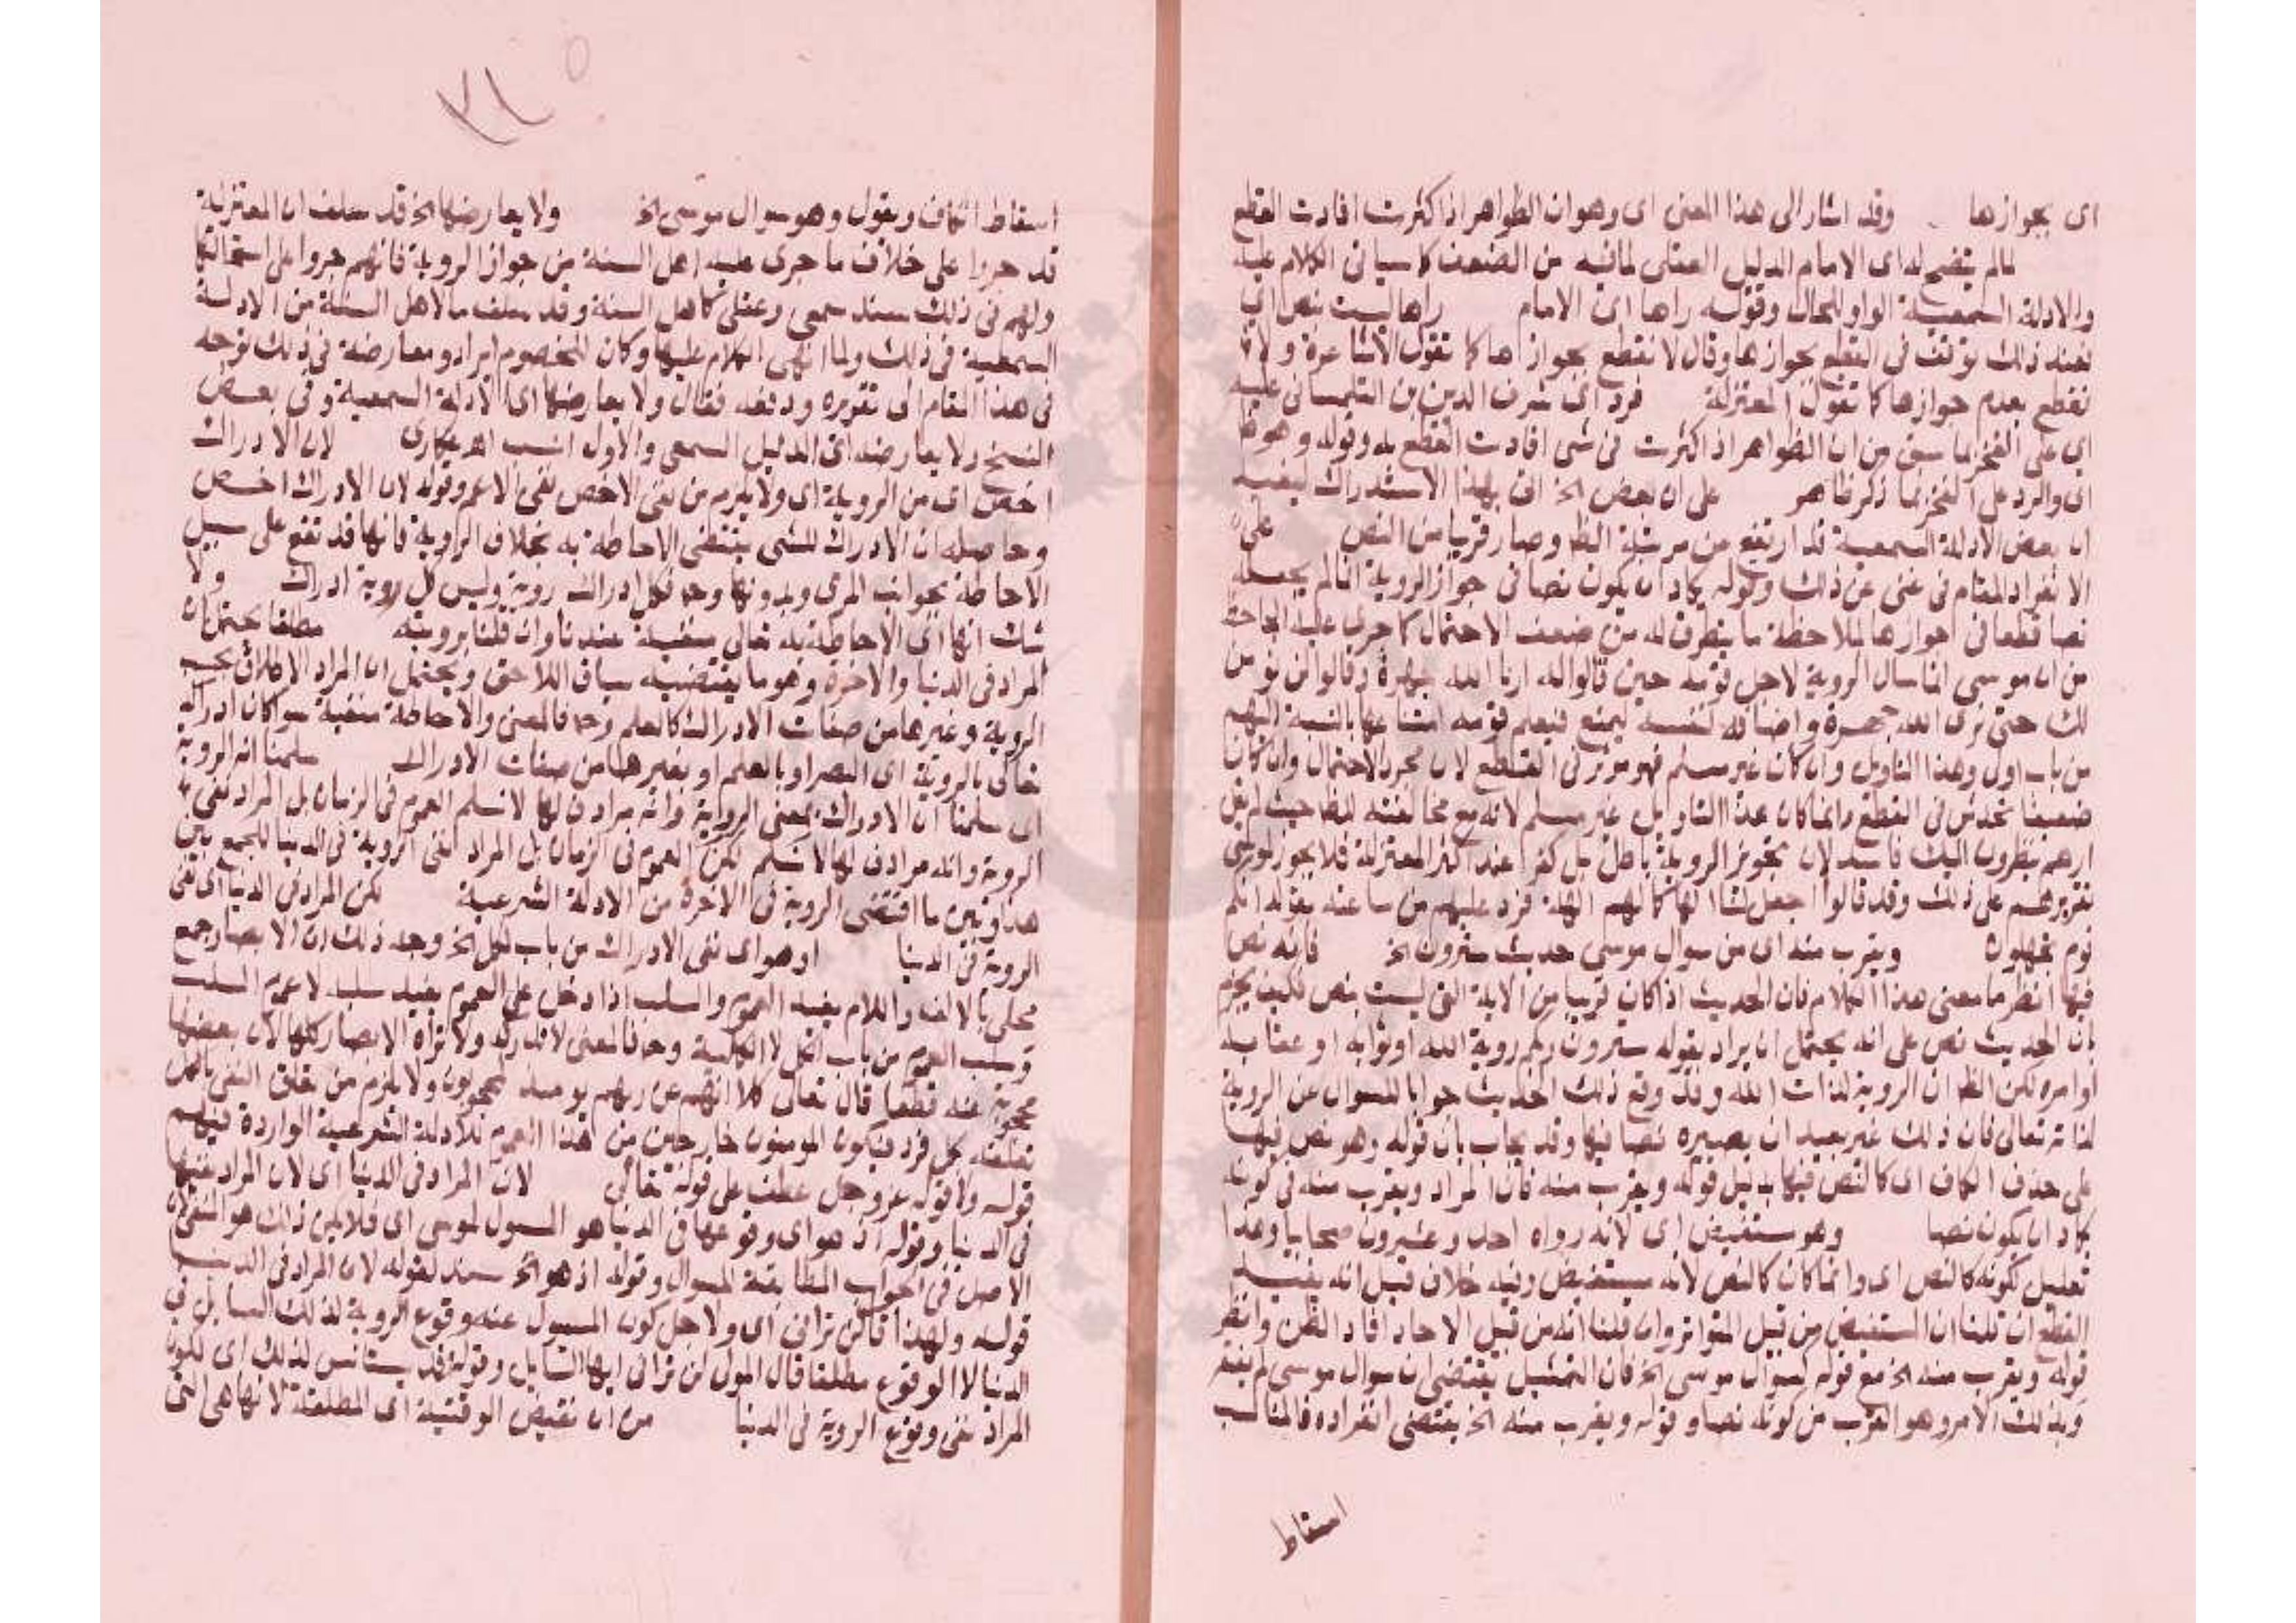 اى بجوازها وقد اشار الى هذا المعنى اى وهو ان الظواهر اذا كثرت افادت القطع
لما لم يتضح له اى الامام الدليل العقلى لما فيه من الضعف كما سياتى الكلام عليه
والادلة السمعية الواو للحال وقوله راها اى الامام راها ليست نص اى
فعند ذلك توقف فى القطع بجوازها وقال لا نقطع بجوازها كما تقول الاشاعرة ولا
نقطع بعدم جوازها كما تقول المعتزلة فرد اى شرف الدين بن التلمسانى عليه
اى على الفخر بما سبق من ان الظواهر اذا كثرت فى شى افادت القطع به وقوله وهو ظ
اى والرد على الفخر بما ذكر ظاهر على ان بعض الخ اتى بهذا الاستدراك ليفيد
ان بعض الادلة السمعية قد ارتفع من مرتبة الظ وصار قريبا من النص على
الانفراد المقام فى غنى عن ذلك وقوله يكاد ان يكون نصا فى جواز الروية انما لم يجعله
نصا قطعا فى جوازها لملاحظة ما يتطرق له من ضعف الاحتمال كما جرى عليه الجاحظ
من ان موسى انما سال الروية لاجل قومه حين قالوا له ارنا الله جهرة وقالوا لن نومن
لك حتى نرى الله جهرة واضافه لنفسه ليمنع فيعلم قومه امتناعها بالنسبة اليهم
من باب اولى وهذا التاويل وان كان غير مسلم فهو موثر فى القطع لان مجرد الاحتمال وان كان
ضعيفا يخدش فى القطع وانما كان هذا التاويل غير مسلم لانه مع مخالفته للظ حيث لم يقل
ارهم ينظرون اليك فاسد لان تجويز الروية باطل بل كفر عند اكثر المعتزلة فلا يجوز لموسى
تقريرهم على ذلك وقد قالوا اجعل لنا الها كما لهم الهة فرد عليهم من ساعته بقوله انكم
قوم تجهلون ويقرب منه اى من سوال موسى حديث سترون الخ فانه نص
فيها انظر ما معنى هذا الكلام فان الحديث اذا كان قريبا من الاية التى ليست بنص فكيف يجزم
بان الحديث نص على انه يحتمل ان يراد بقوله سترون ربكم روية الله او ثوابه او عقابه
او امره لكن الظ ان الروية لذات الله وقد وقع ذلك الحديث جوابا للسوال عن الروية
لذاته تعالى فان ذلك غير بعيد ان يصيره نصا فيها وقد يجاب بان قوله وهو نص فيها
على حذف الكاف اى كالنص فيها بدليل قوله ويقرب منه فان المراد ويقرب منه فى كونه
كاد ان يكون نصا وهو مستفيض اى لانه رواه احد وعشرون صحابيا وهذا
تعليل لكونه كالنص اى وانما كان كالنص لانه مستفيض وفيه خلاف قيل انه يفيد
القطع ان قلنا ان المستفيض من قبيل المتواتر وان قلنا انه من قبيل الاحاد افاد الظن وانظر
قوله ويقرب منه الخ مع قوله لسوال موسى الخ فان التمثيل يقتضى ان سوال موسى لم ينفرد
وبذلك الامر وهو القرب من كونه نصا وقوله ويقرب منه الخ يقتضى انفراده فالمناسب
اسقاط
اسقاط الكاف ويقول وهو سوال موسى الخ ولا يعارضها الخ قد سلف ان المعتزلة
قد جروا على خلاف ما جرى عليه اهل السنة من جواز الروية فانهم جروا على استحالتها
ولهم فى ذلك سند سمعى وعقلى كاهل السنة وقد سلف ما لاهل السنة من الادلة
السمعية فى ذلك ولما انهى الكلام عليها وكان للخصوم ايراد ومعارضة فى ذلك توجه
فى هذا المقام الى تقريره ودفعه فقال ولا يعارضها اى الادلة السمعية وفى بعض
النسخ ولا يعارضه اى الدليل السمعى والاول انسب اهـ عكارى لان الادراك
اخص اى من الروية اى ولا يلزم من نفى الاخص نفى الاعم وقوله لان الادراك اخص
وحاصله ان الادراك للشى يقتضى الاحاطة به بخلاف الروية فانها قد تقع على سبيل
الاحاطة بجوانب المرى وبدونها وح فكل ادراك روية وليس كل روية ادراك ولا
شك انها اى الاحاطة به تعالى منفية عندنا وان قلنا برويته مطلقا يحتمل ان
المراد فى الدنيا والاخرة وهو ما يقتضيه سياق اللاحق ويحتمل ان المراد الاطلاق بحسب
الروية وغيرها من صفات الادراك كالعلم وح فالمعنى والاحاطة منفية سوا كان ادراكه
تعالى بالروية اى البصر او بالعلم او بغيرها من صفات الادراك سلمنا انه الروية
اى سلمنا ان الادراك بمعنى الروية وانه مرادف لها لا نسلم العموم فى الزمان بل المراد نفى
الروية وانه مرادف لها لا نسلم لكن العموم فى الزمان بل المراد نفى الروية فى الدنيا للجمع بين
هذا وبين ما اقتضى الروية فى الاخرة من الادلة الشرعية لكن المراد فى الدنيا اى نفى
الروية فى الدنيا او هو اى نفى الادراك من باب الكل الخ وجه ذلك ان الابصار جمع
محلى بالالف واللام يفيد العموم والسلب اذا دخل على العموم يفيد سلبه لا عموم السلب
وسلب العموم من باب الكل لا الكلية وح فالمعنى لا تدركه ولا تراه الابصار كلها لان بعضها
محجوب عنه قطعا قال تعالى كلا انهم عن ربهم يومئذ لمحجوبون ولا يلزم من تعلق النفى بالكل
تعلقه بكل فرد فيكون المومنون خارجين من هذا العموم للادلة الشرعية الواردة فيهم
قوله ولا قوله عز وجل عطف على قوله تعالى لان المراد فى الدنيا اى لان المراد نفيها
فى الدنيا وقوله اذ هو اى وقوعها فى الدنيا هو المسول لموسى اى فلا يكون ذلك هو المنفى لان
الاصل فى الجواب المطابقة للسوال وقوله اذ هو الخ سند لقوله لان المراد فى الدنيا
قوله ولهذا قال لن ترانى اى ولاجل كون المسول عنه وقوع الروية لذلك السايل فى
الدنيا لا الوقوع مطلقا قال المولى لن ترانى ايها السايل وقوله قد يستانس لذلك اى لكون
المراد نفى وقوع الروية فى الدنيا من ان نقيض الوقتية اى المطلقة لانها هى التى